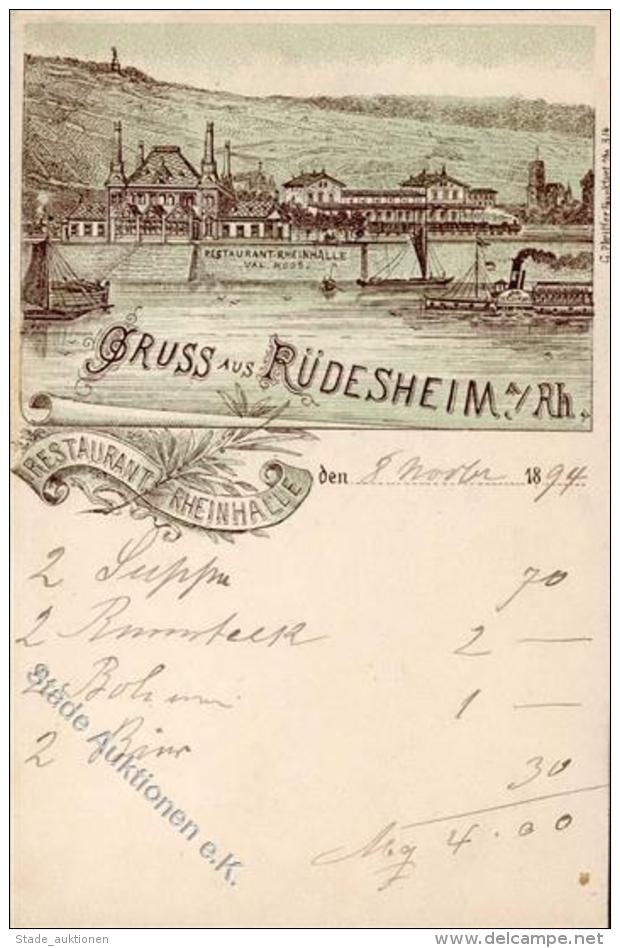 RESTAURANT-RHEINHALLE
VAL. ROOS.
G. Pfeiffer Frankfurt
GRUSS AUS RÜDESHEIM A/Rh.
RESTAURANT RHEINHALLE
den 8 Novbr 1894
2 Suppe 70
2 Rumsteak 2 —
2 1 —
2 Bier 30
4.00
Stade Auktionen e.K.
Stade_auktionen
www.delcampe.net